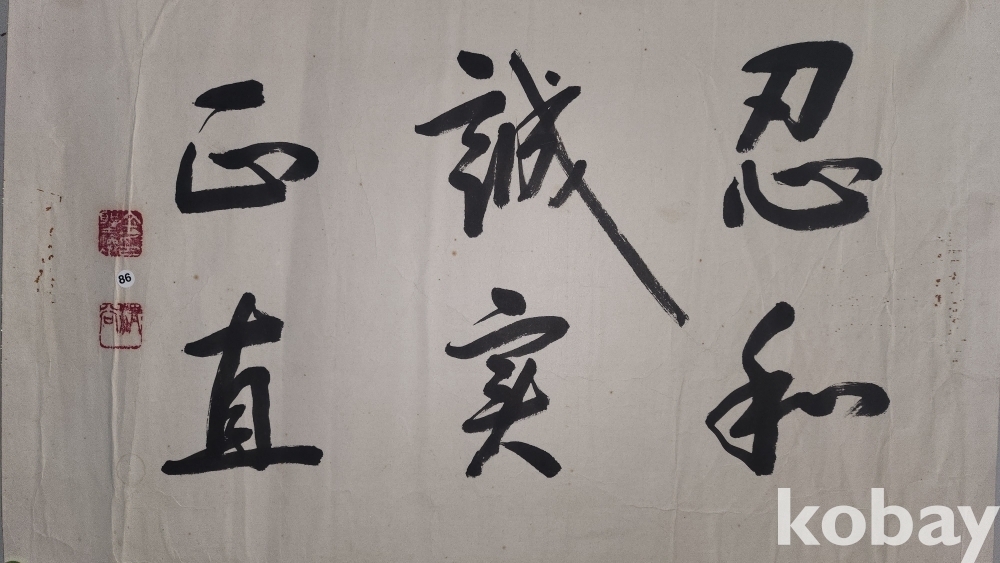 忍和
誠実
正直
86
kobay